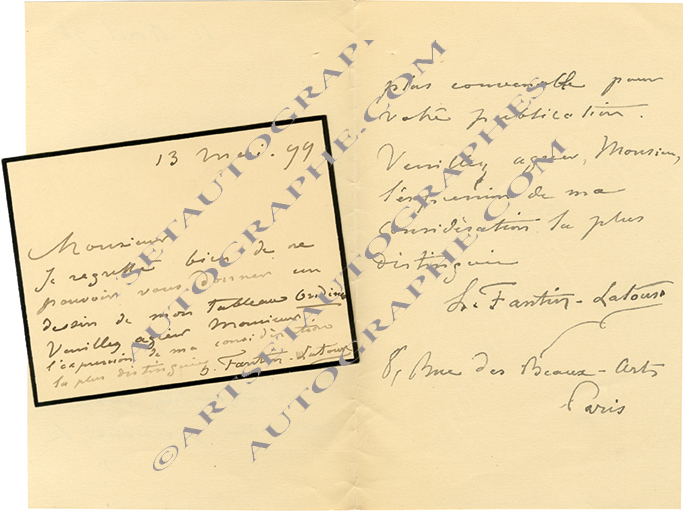 13 Mai. 99
Monsieur
Je regrette bien de ne
pouvoir vous donner un
dessin de mon Tableau Ondine
Veuillez agréer Monsieur
l'expression de ma considération
la plus distinguée
h. Fantin-Latour
plus convenable pour
votre publication.
Veuillez agréer, Monsieur,
l'expression de ma
considération la plus
distinguée
h. Fantin-Latour
8, Rue des Beaux-Arts
Paris
©ARTSETAUTOGRAPHE.COM
AUTOGRAPHE.COM
ARTSETAUTOGRAPHES.COM
AUTOGRAPHE.COM